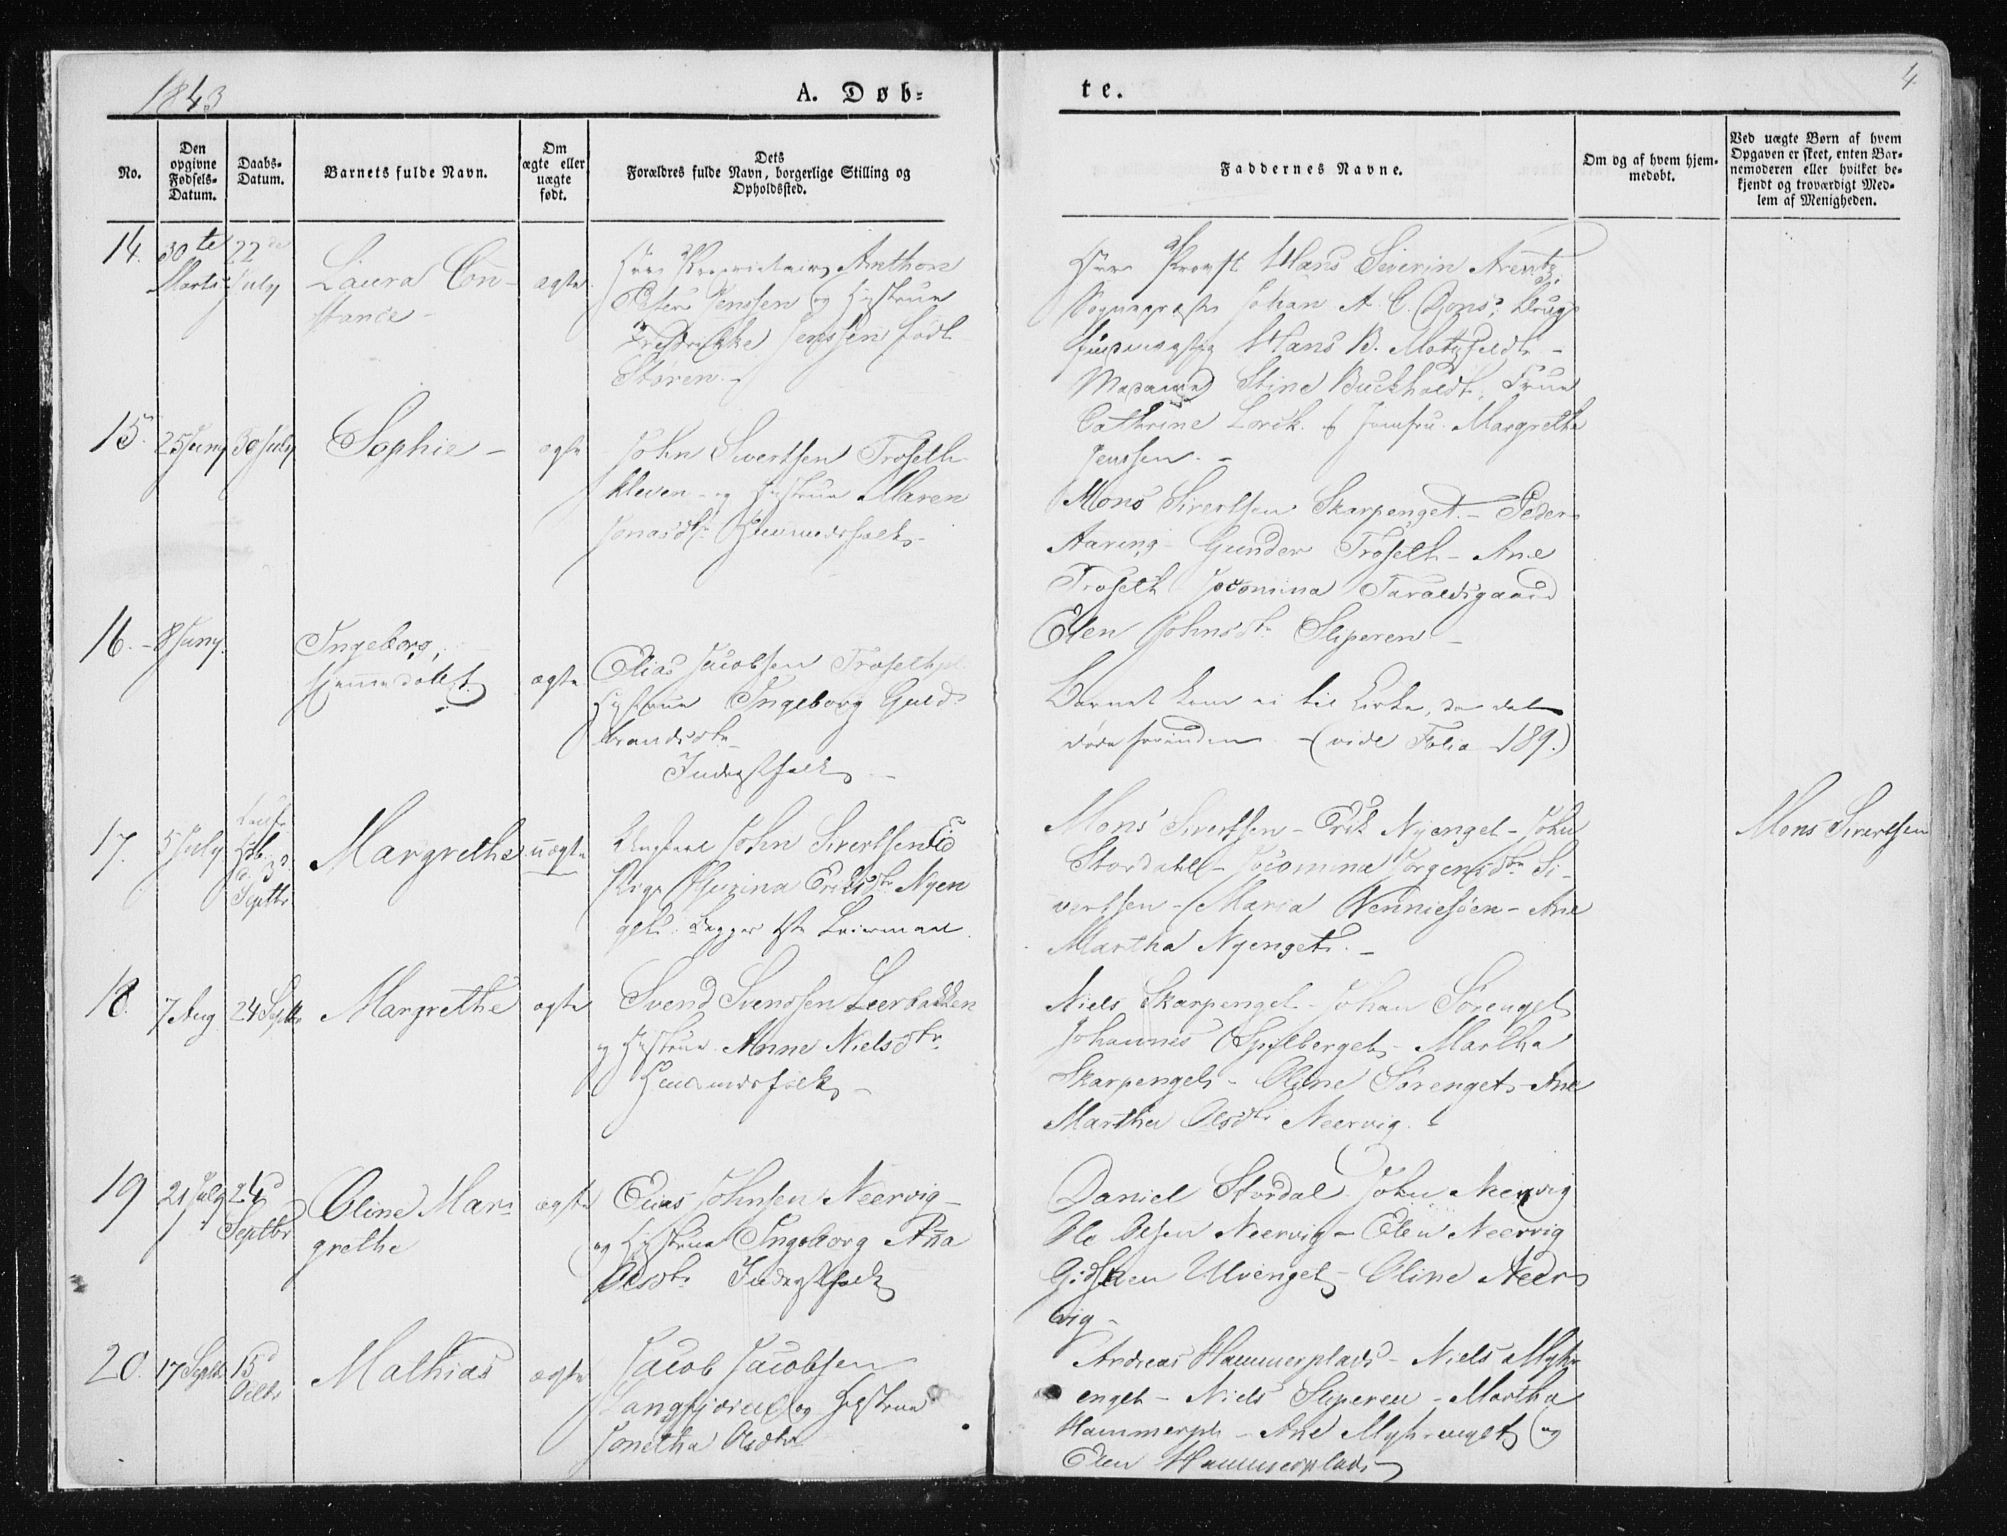 1843
A. Døb=
te.
4.
No.
Den opgivne Fødsels-Datum.
Daabs-Datum.
Barnets fulde Navn.
Om ægte eller uægte født.
Dets Forældres fulde Navn, borgerlige Stilling og Opholdssted.
Faddernes Navne.
Om og af hvem hjemmedøbt.
Ved uægte Børn af hvem Opgaven er skeet, enten Barnemoderen eller hvilket bekjendt og troværdigt Medlem af Menigheden.
14. 30te Marts 22de July
Laura Con-
stance -
ægte
Herr Proprietair Anthon
Peter Jenssen og Hustrue
Fredrikke Jenssen født
Støren.
Herr Provst Hans Severin Arentz,
Sogneprest Johan A. C. Dons,
Hans B. Motzfeldt -
Madame Stine Buckholdt, Frue
Cathrine Lorck & Jomfru Margrethe
Jenssen. -
15. 25 Juny 30 July
Sophie -
ægte
John Sivertsen Troseth
kleven - og Hustrue Maren
Jonasdtr Huusmandsfolk -
Mons Sivertsen Skarpenget - Peder
Aaring - Gunder Troseth - Ane
Troseth Jocomina Taraldsgaard
Elen Johnsdtr Sliperen -
16. - 8 Juny.
Ingeborg,
hjemmedøbt
ægte
Elias Jacobsen Trosethpl.
Hustrue Ingeborg Guld-
brandsdtr
Inderstfolk -
Barnet kom ei til Kirke, da det
døde forinden - (vide Folio 189.)
17. 5 July
3d Septbr
Margrethe
uægte
Ungkarl John Sivertsen Eid
Pige Gurina Eriksdtr Nyen
get. Begges 1ste Leiermaal.
Mons Sivertsen - Erik Nyenget - John
Stordahl - Jocomina Jørgensdtr Si-
vertsen - Maria Wenniesøen - Ane
Martha Nyenget. -
Mons Sivertsen
18. 7 Aug 24 Septbr
Margrethe
ægte
Svend Svendsen Leerbakken
og Hustrue Anne Nielsdtr
Huusmandsfolk -
Niels Skarpenget - Johan Sørenget
Johannes Spilberget - Martha
Skarpenget - Oline Sørenget - Ane
Martha Olsdtr Neervig.
19 21 July 24d Septbr
Oline Mar=
grethe
ægte
Elias Johnsen Neervig -
og Hustrue Ingeborg Ana
Olsdtr Inderstfolk
Daniel Stordal John Neervig
Ole Olsen Neervig - Elen Neervig
Ulvenget - Oline Neer
vig -
20. 17 Septbr 15d Octbr
Mathias
ægte
Jacob Jacobsen
Langfjæren og Hustrue
Jonetha Olsdtr
Andreas Hammerplads - Niels Myhr
enget - Niels Sliperen - Martha
Hammerpl - Ane Myhrenget og
Elen Hammerplads